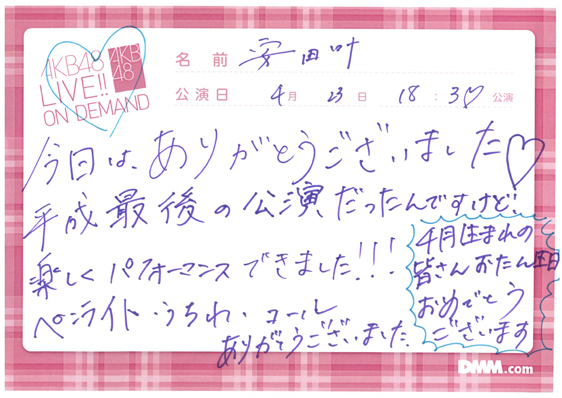 AKB48
LIVE!!
ON DEMAND
AKB
48
名前 安田叶
公演日 4月 23日 18:30公演
今日は、ありがとうございました♡
平成最後の公演だったんですけど、
楽しくパフォーマンスできました!!!
ペンライト・うちわ・コール
ありがとうございました
4月生まれの
皆さんおたん生日
おめでとう
ございます
DMM.com